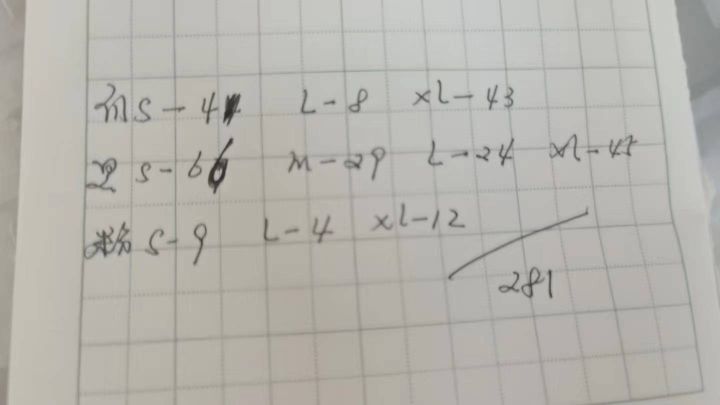 S-41 L-8 XL-43
S-66 M-29 L-24 XL-45
粉 S-9 L-4 XL-12
281